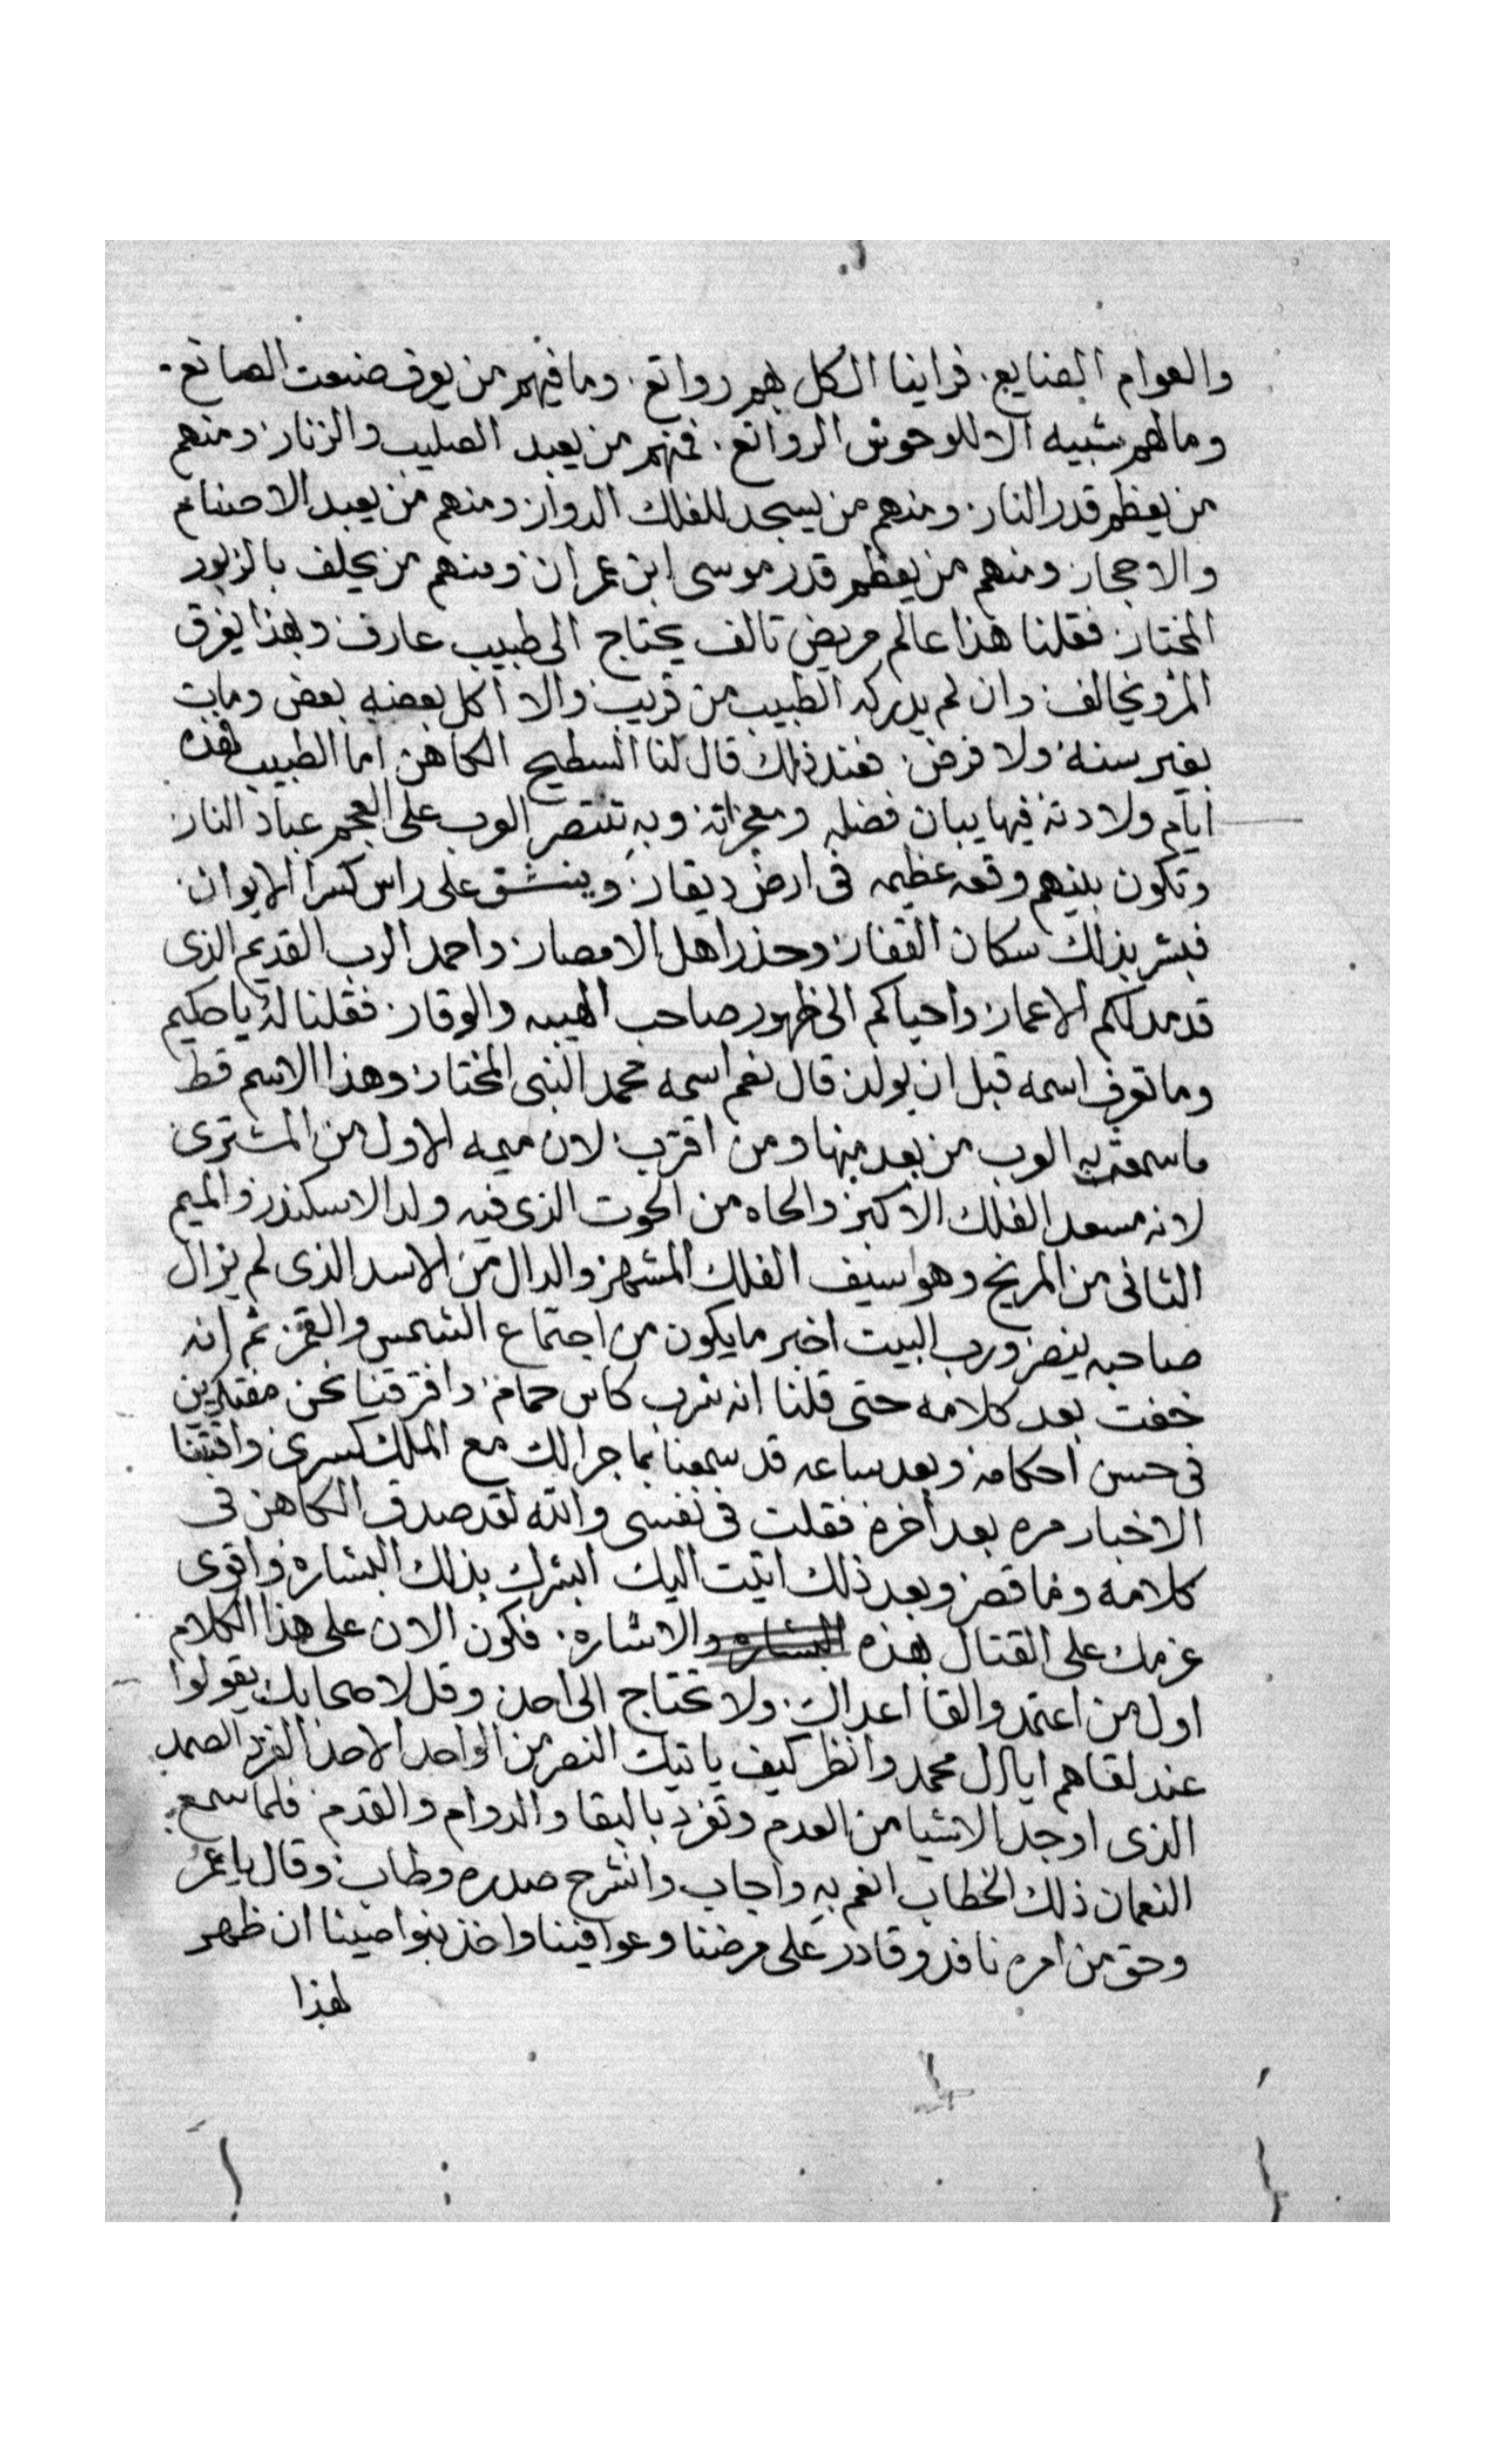 والعوام الصنايع. فراينا الكل بهم رواتع. وما فيهم من يعرف صنعت الصانع.
وما لهم شبيه الا للوحوش الرواتع. فمنهم من يعبد الصليب والزنار ومنهم
من يعظم قدر النار. ومنهم من يسجد للفلك الدوار ومنهم من يعبد الاصنام
والاحجار ومنهم من يعظم قدر موسى ابن عمران ومنهم من يحلف بالزبور
المختار فقلنا هذا عالم مريض تالف يحتاج الى طبيب عارف وبهذا يفرق
المرو يخالف وان لم يدركه الطبيب من قريب والا اكل بعضه بعض ومات
بغير سنه ولا فرض. فعند ذلك قال لنا السطيح الكاهن اما الطبيب فهذه
ايام ولادته فيها يبان فضله ومعجزاته وبه تنتصر العرب على العجم عباد النار
وتكون بينهم وقعه عظيمه فى ارض ديقار وينشق على راس كسرا الايوان.
فبشر بذلك سكان القفار وحذر اهل الامصار واحمد الرب القديم الذى
قد مد لكم الاعمار واحياكم الى ظهور صاحب الهيبه والوقار. فقلنا له يا حكيم
وما تعرف اسمه قبل ان يولد قال نعم اسمه محمد النبى المختار وهذا الاسم قط
ما سمعته به العرب من بعد منها ومن اقترب لان ميمه الاول من المشترى
لانه مسعد الفلك الاكبر والحاه من الحوت الذى فيه ولد الاسكندر والميم
الثانى من المريخ وهو سيف الفلك المشهر والدال من الاسد الذى لم يزال
صاحبه ينصر ورب البيت اخبر ما يكون من اجتماع الشمس والقمر ثم انه
خفت بعد كلامه حتى قلنا انه شرب كاس حمامه وافترقنا نحن مفتكرين
فى حسن احكامه وبعد ساعه قد سمعنا بما جرا لك مع الملك كسرى واتتنا
الاخبار مره بعد اخره فقلت فى نفسى والله لقد صدق الكاهن فى
كلامه وما قصر وبعد ذلك اتيت اليك ابشرك بذلك البشاره واقوى
عزمك على القتال بهذه البشاره والاشاره. فكون الان على هذا الكلام
اول من اعتمد والقا اعداك. ولا تحتاج الى احد وقل لاصحابك يقولوا
عند لقاهم ايا ال محمد وانظر كيف ياتيك النصر من الواحد الاحد الفرد الصمد
الذى اوجد الاشيا من العدم وتفرد بالبقا والدوام والقدم فلما سمع
النعمان ذلك الخطاب انعم به واجاب وانشرح صدره وطاب وقال يا عمر
وحق من امره نافذ وقادر على مرضنا وعوافينا واخذ بنواصينا ان ظهر
لهذا